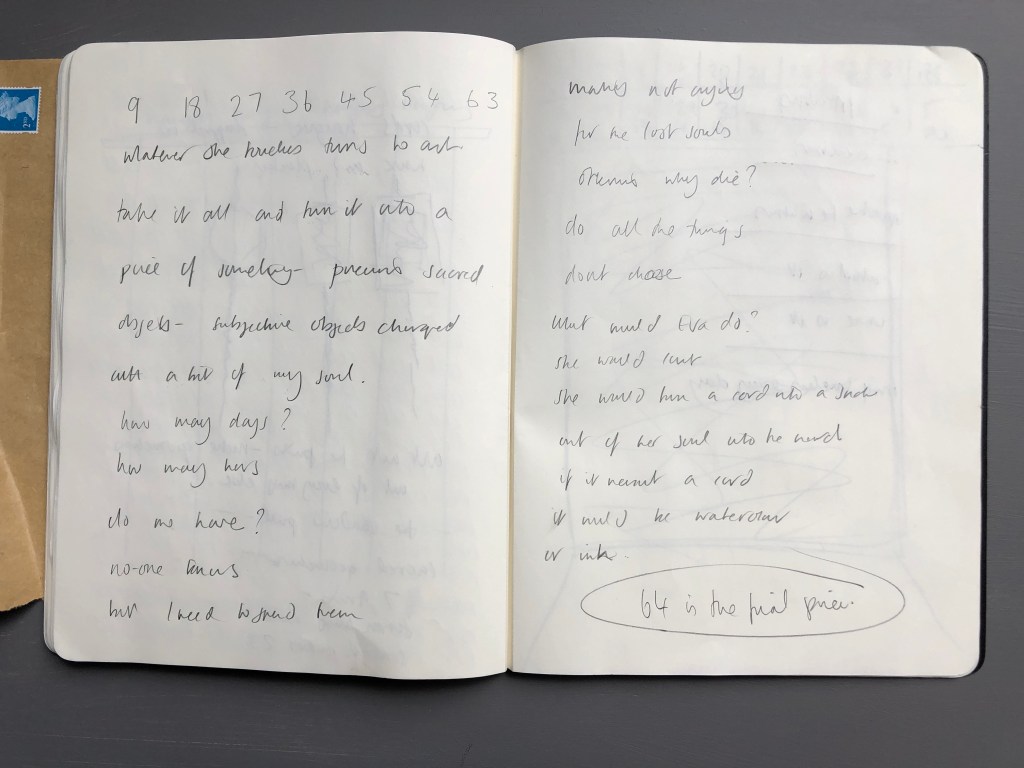 2ND
9 18 27 36 45 54 63
whatever she touches turns to art
take it all and turn it into a
piece of precious sacred
objets - subjective objects charged
with a bit of my soul.
how may days?
how may hors
do we have?
no-one knows
but I need to spend them
not
for the lost souls
why die?
do all the things
dont choose
what would Eva do?
she would
she would turn a cord into a
out of her soul into the world
if it wernt a cord
it would be watercolour
or ink.
64 is the final piece.